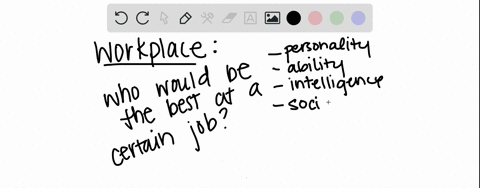 Workplace:
who would be
the best at a
certain job?
- personality
- ability
- intelligence
- soci